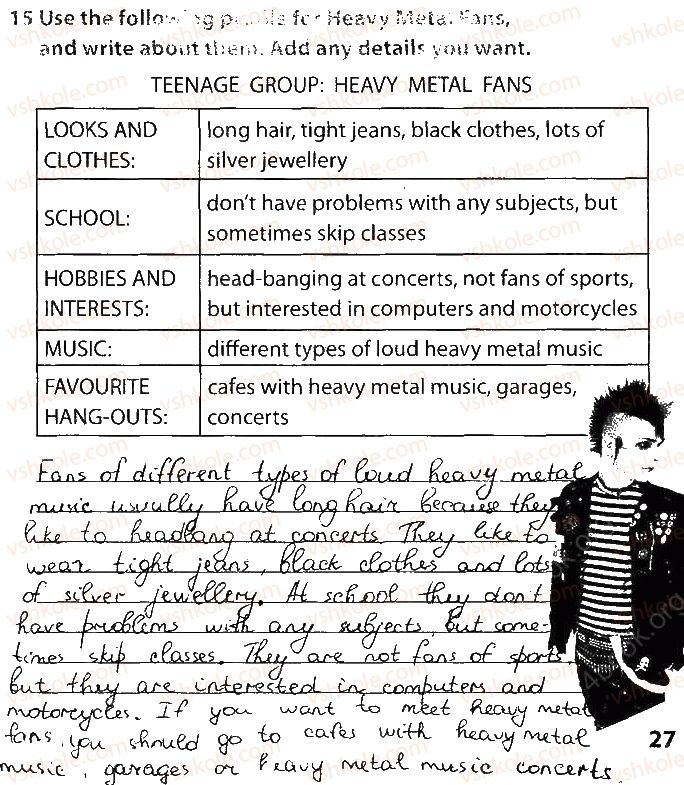 15 Use the following profile for Heavy Metal Fans,
and write about them. Add any details you want.
TEENAGE GROUP: HEAVY METAL FANS
LOOKS AND CLOTHES:
long hair, tight jeans, black clothes, lots of
silver jewellery
SCHOOL:
don't have problems with any subjects, but
sometimes skip classes
HOBBIES AND INTERESTS:
head-banging at concerts, not fans of sports,
but interested in computers and motorcycles
MUSIC:
different types of loud heavy metal music
FAVOURITE HANG-OUTS:
cafes with heavy metal music, garages,
concerts
Fans of different types of loud heavy metal
music usually have long hair because they
like to headbang at concerts. They like to
wear tight jeans, black clothes and lots
of silver jewellery. At school they don't
have problems with any subjects, but some-
times skip classes. They are not fans of sports,
but they are interested in computers and
motorcycles. If you want to meet heavy metal
fans, you should go to cafes with heavy metal
music, garages or heavy metal music concerts.
27
vshkole.com